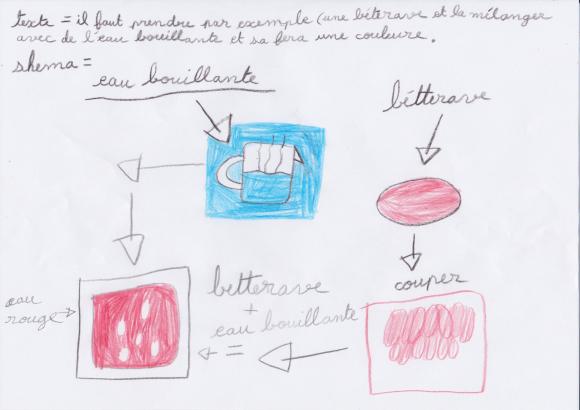 texte = il faut prendre par exemple (une béterave et la mélanger
avec de l'eau bouillante et sa fera une couleure.
shema =
eau bouillante
bétterave
couper
betterave
+
eau bouillante
=
eau
rouge